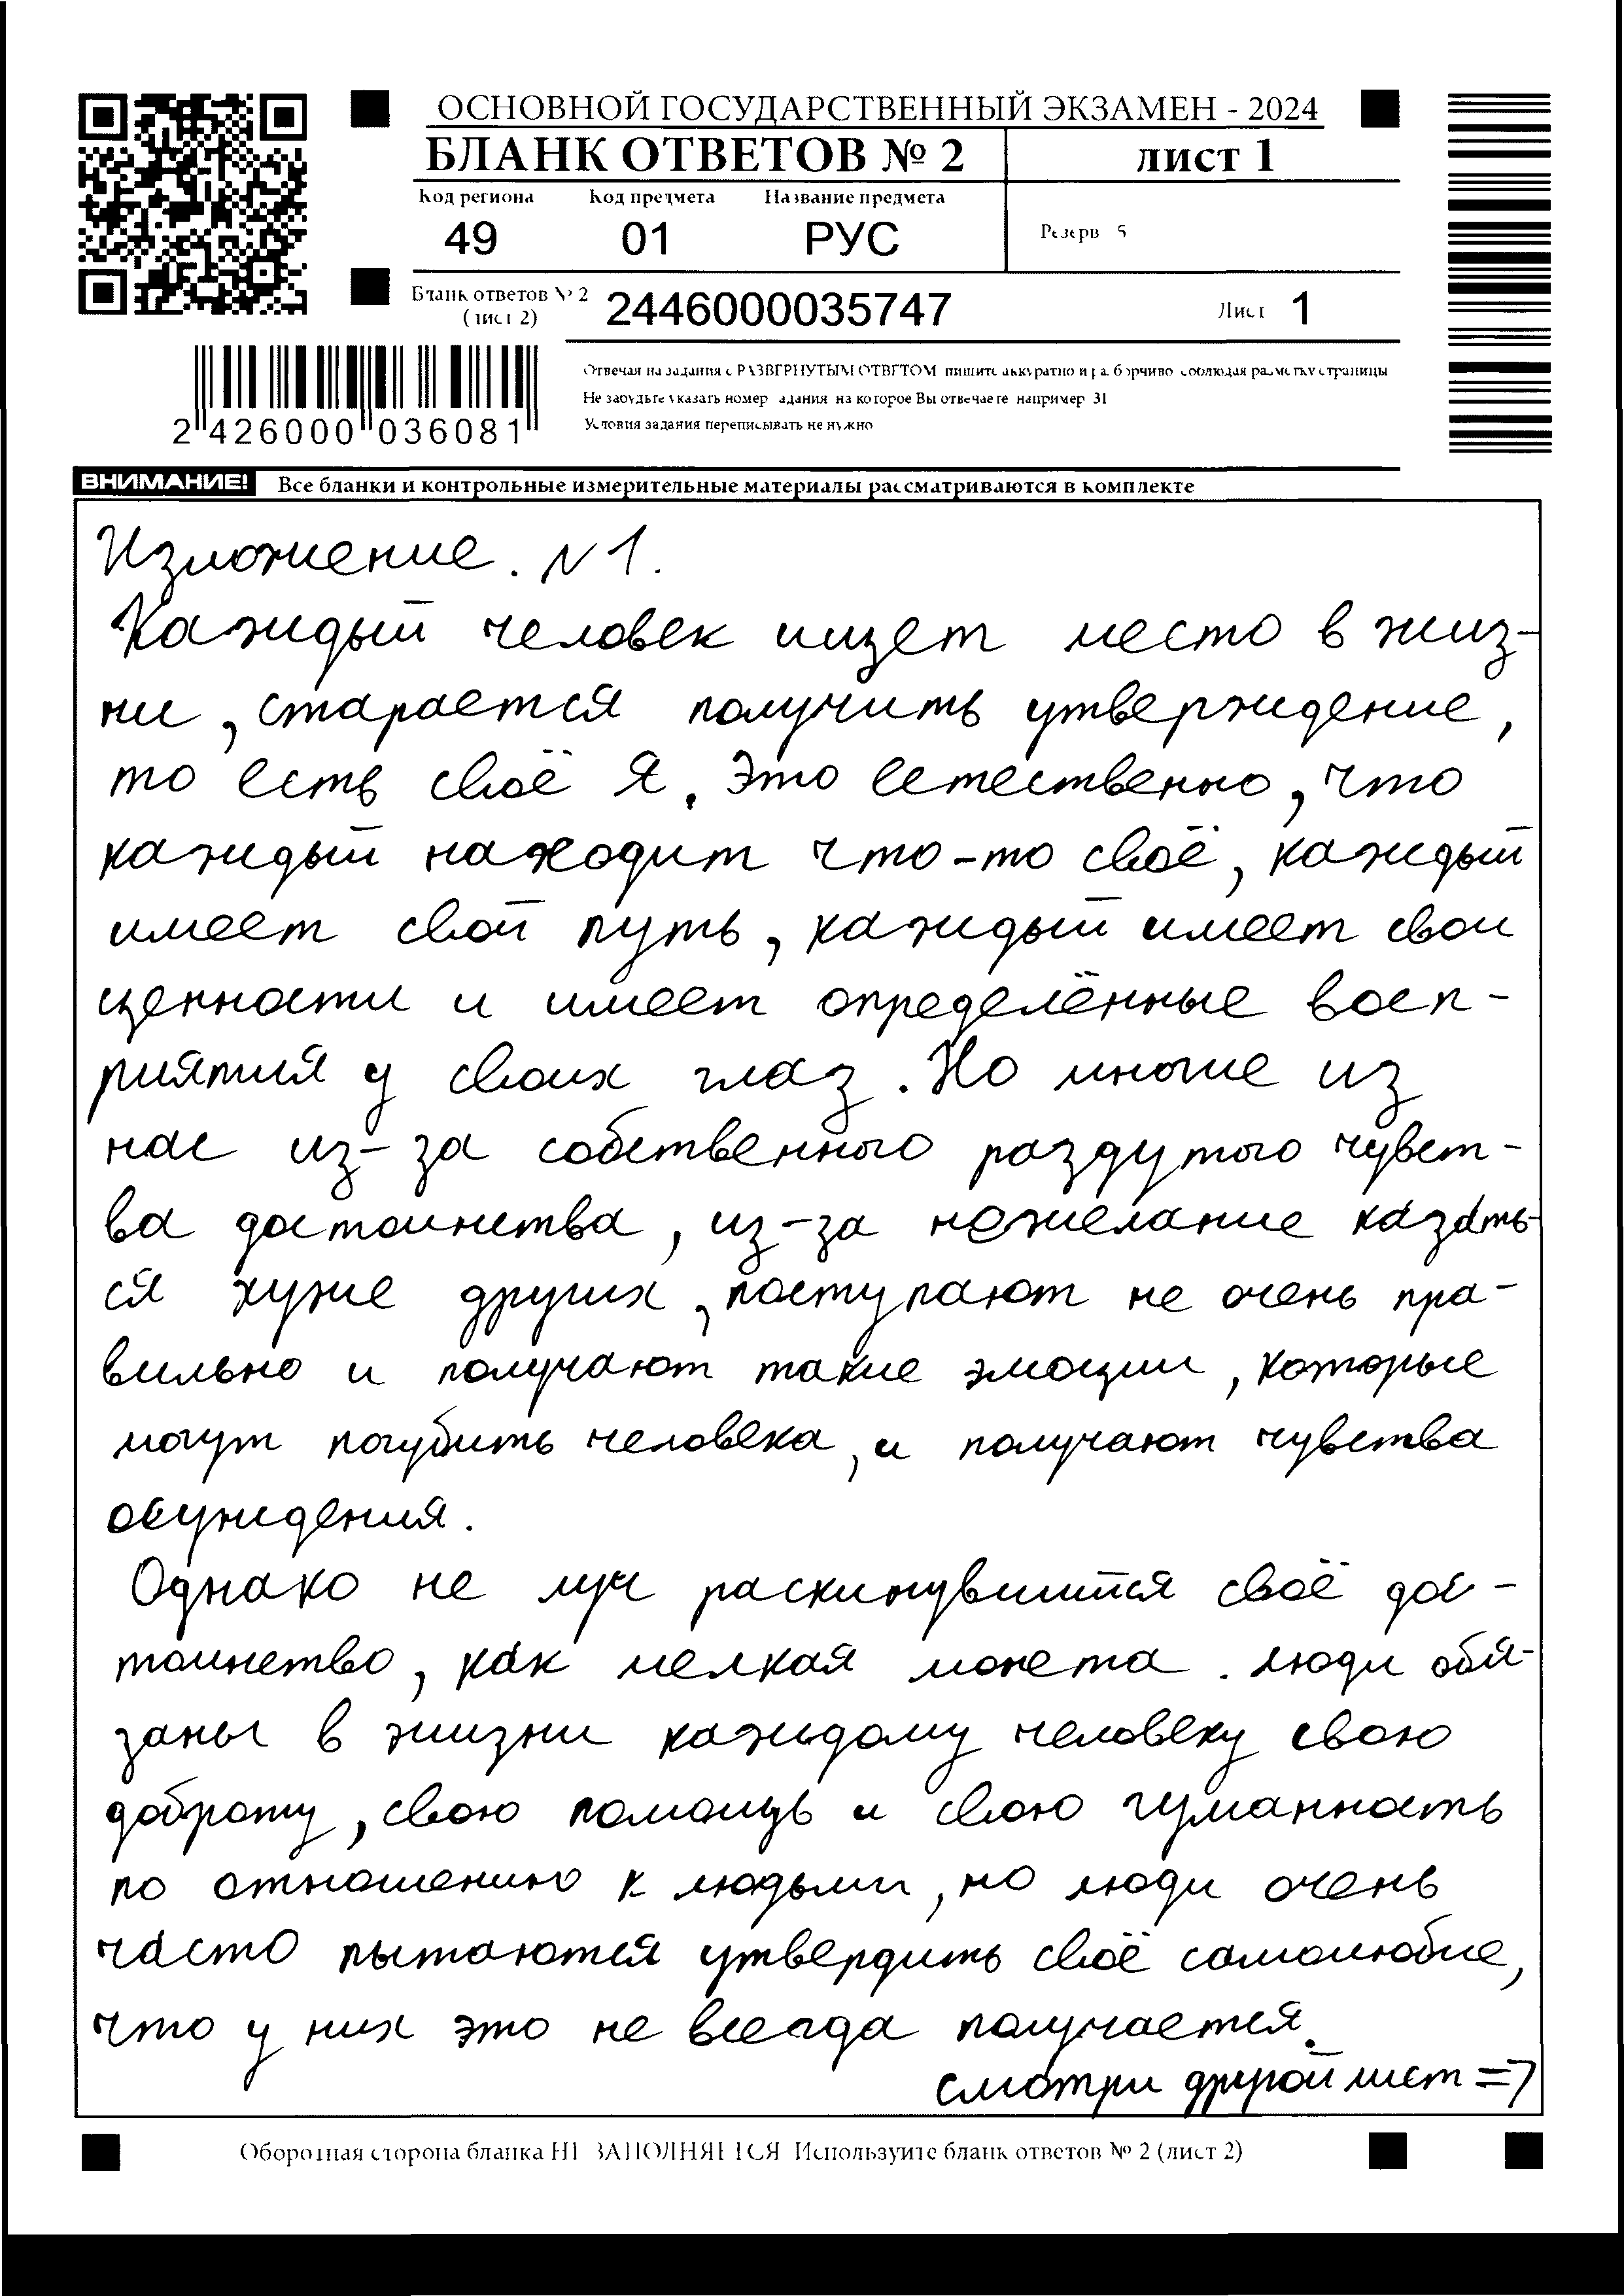 ОСНОВНОЙ ГОСУДАРСТВЕННЫЙ ЭКЗАМЕН - 2024
БЛАНК ОТВЕТОВ № 2
лист 1
Код региона Код предмета Название предмета
49 01 РУС
Резерв 5
Бланк ответов № 2
(лист 2)
2446000035747
Лист 1
2 426000 036081
Отвечая на задания с РАЗВЕРНУТЫМ ОТВЕТОМ пишите аккуратно и разборчиво соблюдая разметку страницы
Не забудьте указать номер задания на которое Вы отвечаете например 31
Условия задания переписывать не нужно
ВНИМАНИЕ! Все бланки и контрольные измерительные материалы рассматриваются в комплекте
Изложение. N1.
Каждый человек ищет место в жиз-
ни, старается получить утверждение,
то есть своё Я. Это естественно, что
каждый находит что-то своё, каждый
имеет свой путь, каждый имеет свои
ценности и имеет определённые восп-
риятия у своих глаз. Но многие из
нас из-за собственного раздутого чувст-
ва достоинства, из-за нежелание казать-
ся хуже других, поступают не очень пра-
вильно и получают такие эмоции, которые
могут погубить человека, и получают чувства
осуждения.
Однако не луч раскинувшийся своё дос-
тоинство, как мелкая монета. люди обя-
заны в жизни каждому человеку свою
доброту, свою помощь и свою гуманность
по отношению к людьми, но люди очень
часто пытаются утвердить своё самолюбие,
что у них это не всегда получается.
смотри другой лист =>
Оборотная сторона бланка НЕ ЗАПОЛНЯЕТСЯ Используйте бланк ответов № 2 (лист 2)